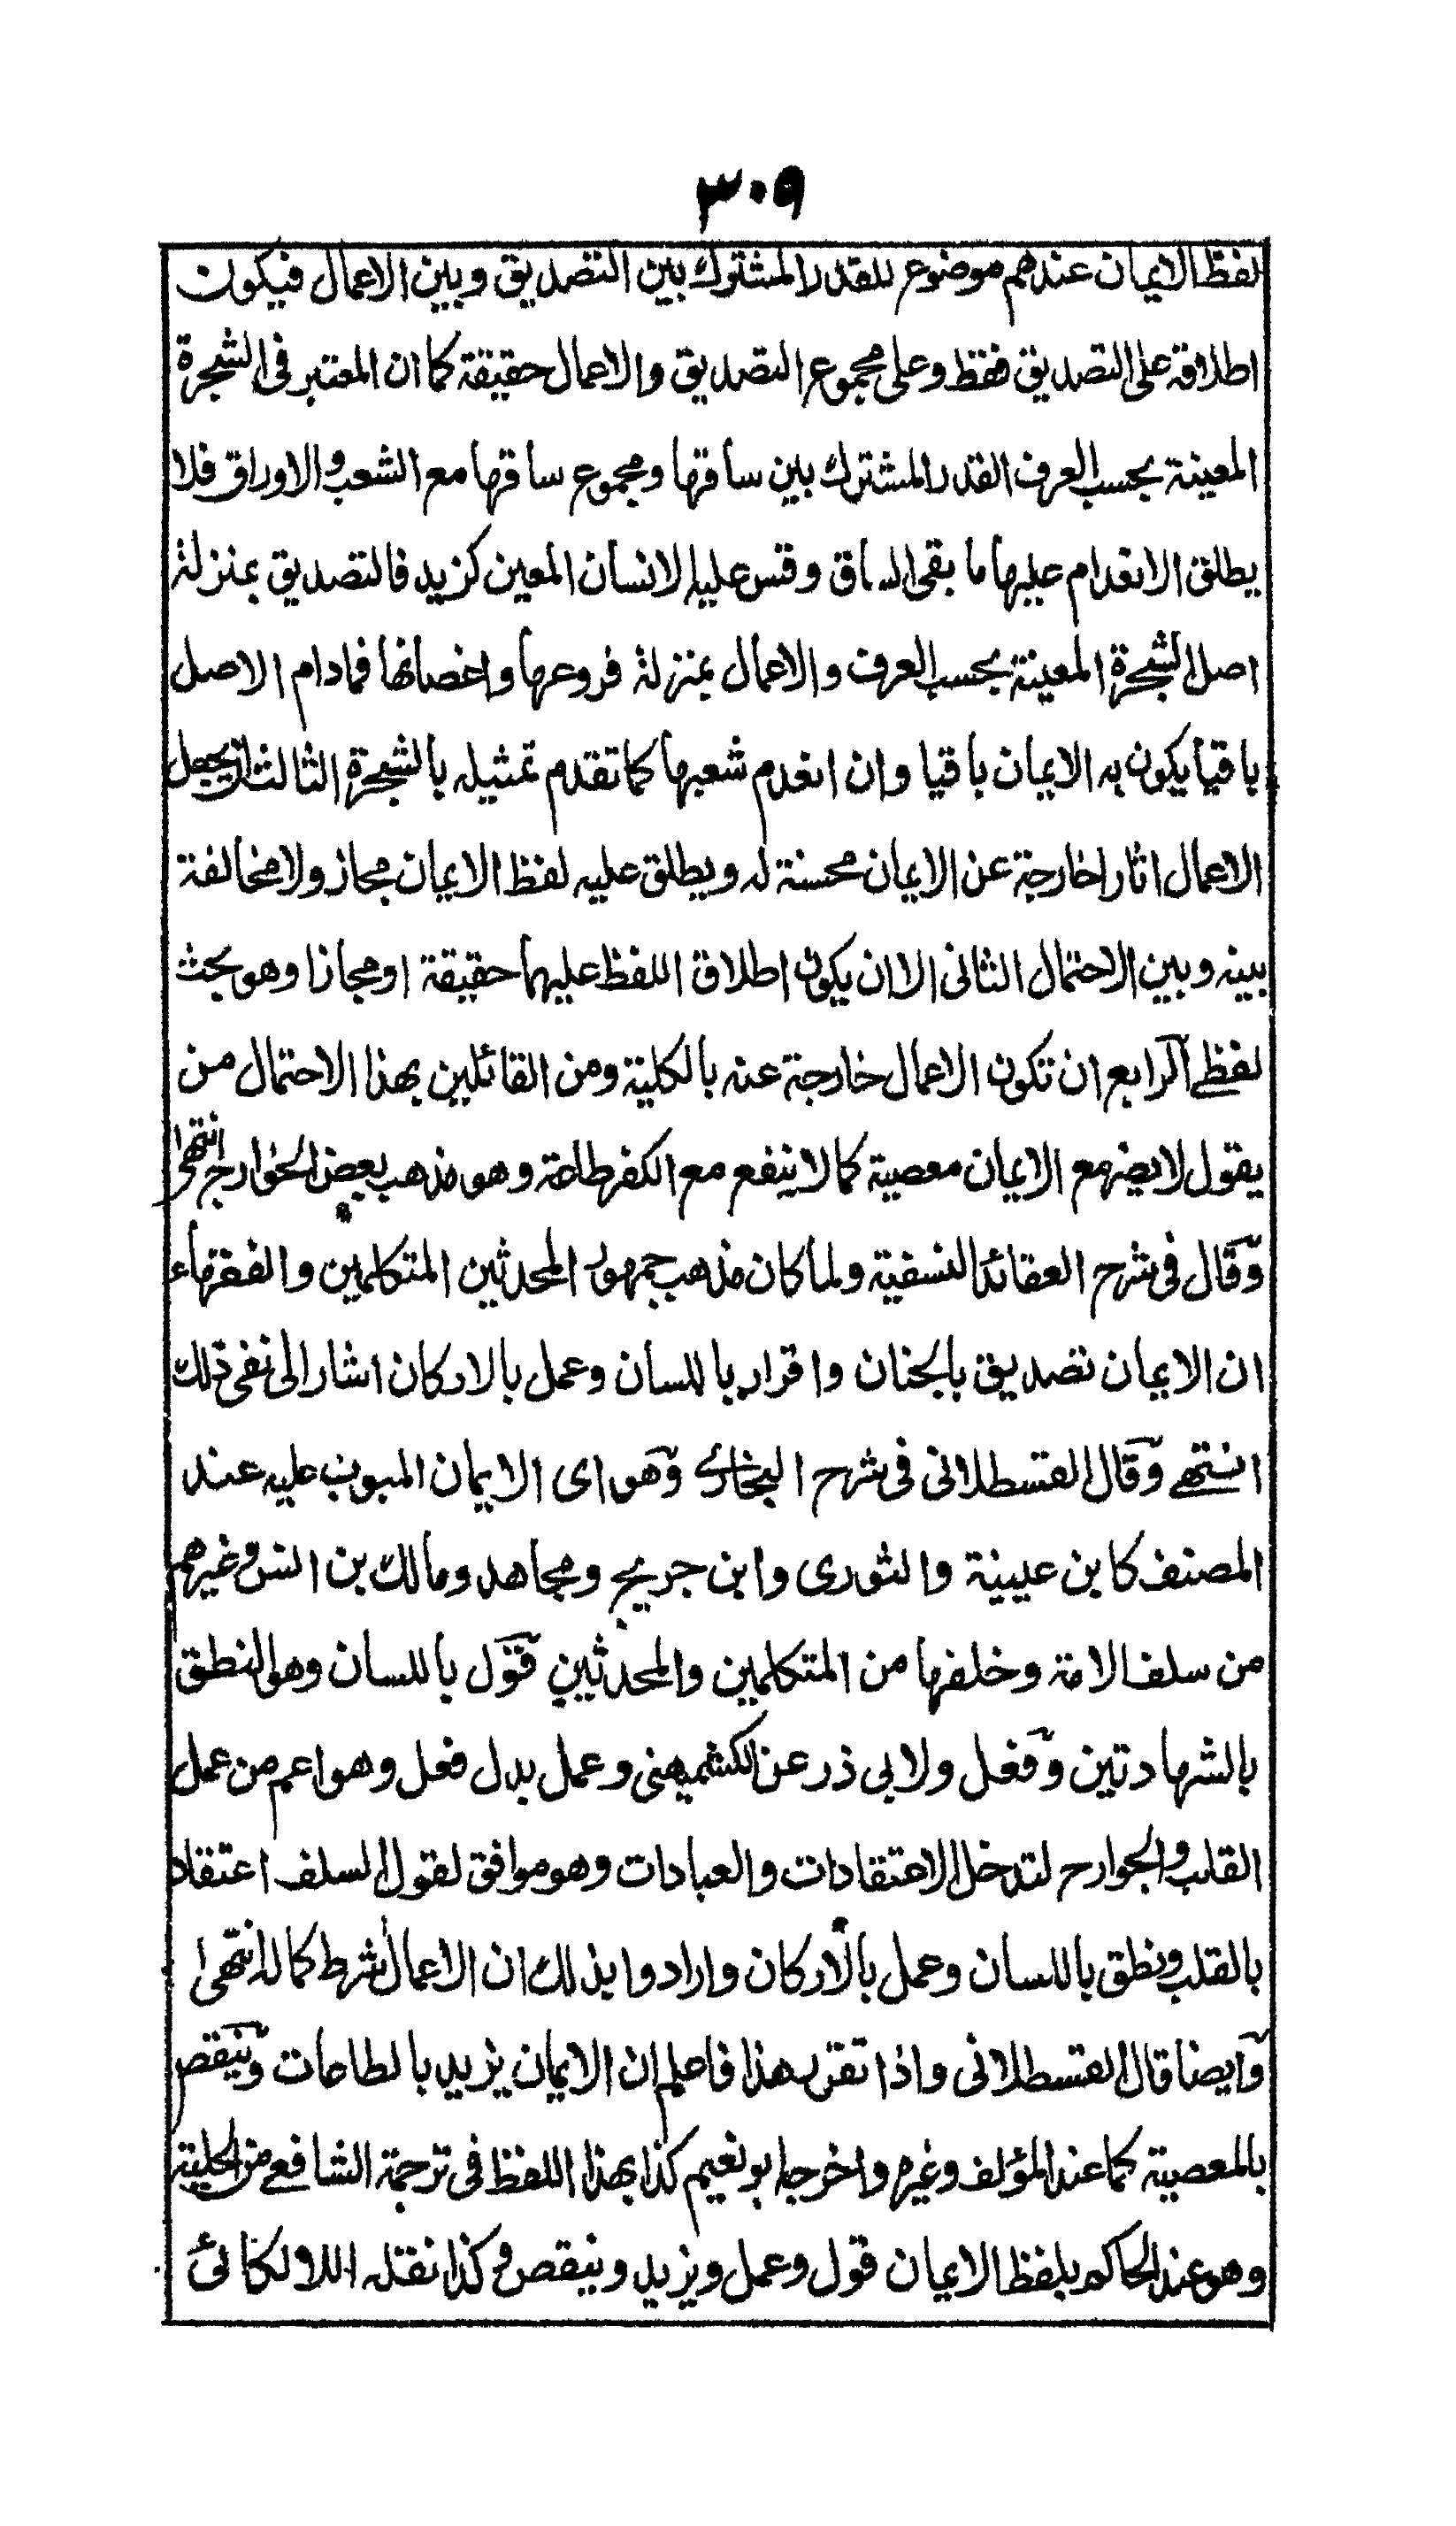 ٣٠٩
لفظ الايمان عندهم موضوع للقدر المشترك بين التصديق وبين الاعمال فيكون
اطلاقه على التصديق فقط وعلى مجموع التصديق والاعمال حقيقة كما ان المعتبر فى الشجرة
المعينة بحسب العرف القدر المشترك بين ساقها ومجموع ساقها مع الشعب والاوراق فلا
يطلق الانعدام عليها ما بقى الساق وقس عليه الانسان المعين كزيد فالتصديق بمنزلة
اصل الشجرة المعينة بحسب العرف والاعمال بمنزلة فروعها واغصانها فمادام الاصل
باقيا يكون به الايمان باقيا وان انعدم شعبها كما تقدم تمثيله بالشجرة الثالث ان يجعل
الاعمال اثارا خارجة عن الايمان محسنة له ويطلق عليه لفظ الايمان مجاز ولا مخالفة
بينه وبين الاحتمال الثانى الا ان يكون اطلاق اللفظ عليهما حقيقة او مجازا وهو بحث
لفظے الرابع ان تكون الاعمال خارجة عنه بالكلية ومن القائلين بهذا الاحتمال من
يقول لا يضر مع الايمان معصية كما لا ينفع مع الكفر طاعة وهو مذهب بعض الخوارج انتهى
وقال فى شرح العقائد النسفية ولما كان مذهب جمهور المحدثين المتكلمين والفقهاء
ان الايمان تصديق بالجنان واقرار باللسان وعمل بالاركان اشار الى نفى ذلك
انتهے وقال القسطلانى فى شرح البخارے وهو اى الايمان المبوب عليه عند
المصنف كابن عيينة والثورى وابن جريج ومجاهد ومالك بن انس وغيرهم
من سلف الامة وخلفها من المتكلمين والمحدثين قول باللسان وهو النطق
بالشهادتين وفعل ولابى ذر عن الكشميهنى وعمل بدل فعل وهو اعم من عمل
القلب والجوارح لتدخل الاعتقادات والعبادات وهو موافق لقول السلف اعتقاد
بالقلب ونطق باللسان وعمل بالاركان وارادوا بذلك ان الاعمال شرط كماله انتهى
وايضا قال القسطلانى واذا تقرر هذا فاعلم ان الايمان يزيد بالطاعات وينقص
بالمعصية كما عند المؤلف وغيره واخرجه ابو نعيم كذا بهذا اللفظ فى ترجمة الشافعے من الحلية
وهو عند الحاكم بلفظ الايمان قول وعمل ويزيد وينقص وكذا نقله اللالكائى